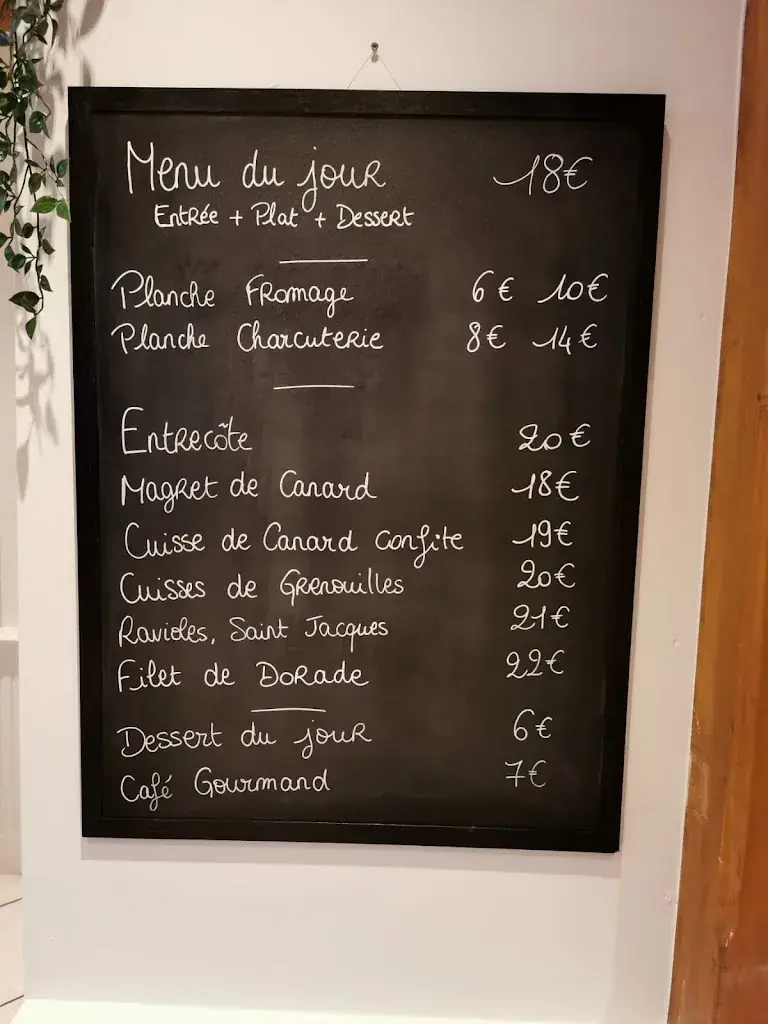 Menu du jour 18€
Entrée + Plat + Dessert
Planche Fromage 6€ 10€
Planche Charcuterie 8€ 14€
Entrecôte 20€
Magret de Canard 18€
Cuisse de Canard confite 19€
Cuisses de Grenouilles 20€
Ravioles, Saint Jacques 21€
Filet de Dorade 22€
Dessert du jour 6€
Café Gourmand 7€